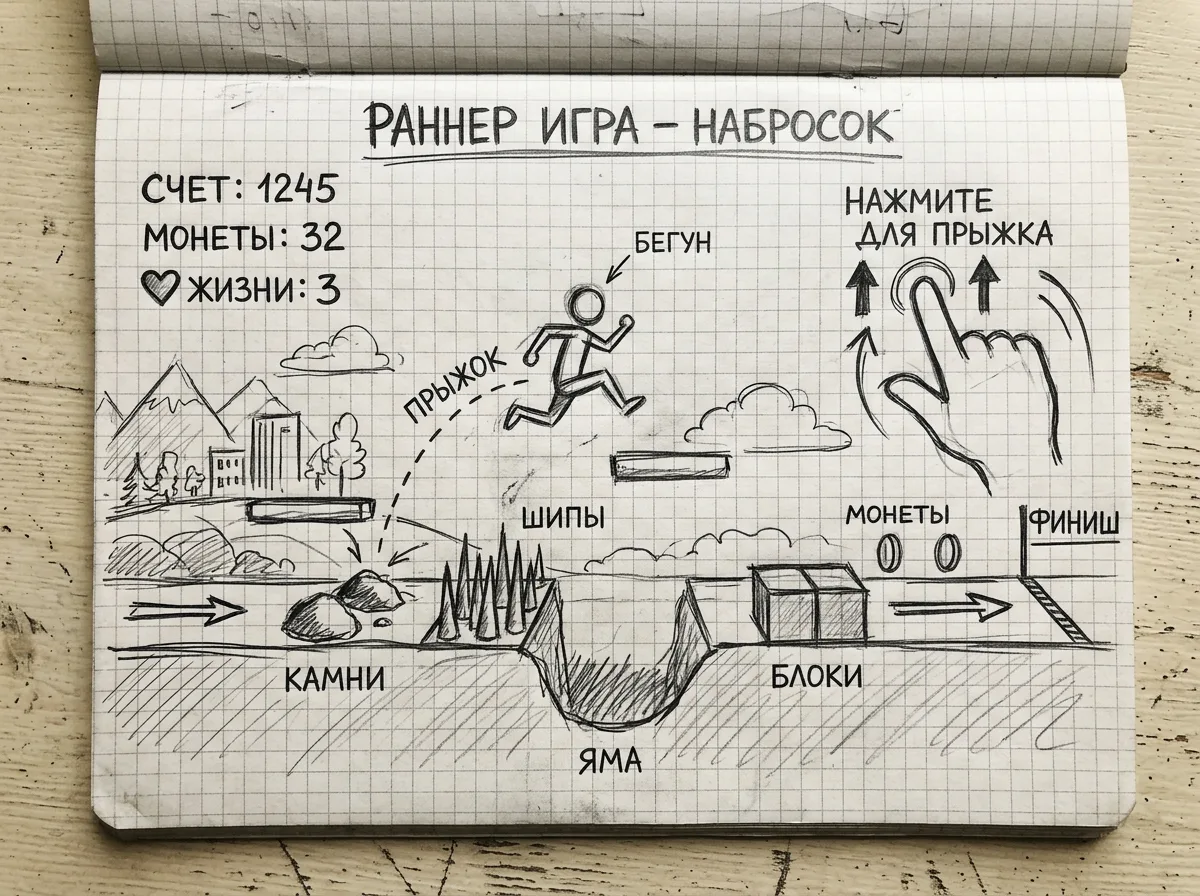 РАННЕР ИГРА – НАБРОСОК
СЧЕТ: 1245
МОНЕТЫ: 32
ЖИЗНИ: 3
НАЖМИТЕ
ДЛЯ ПРЫЖКА
БЕГУН
ПРЫЖОК
ШИПЫ
МОНЕТЫ
ФИНИШ
КАМНИ
БЛОКИ
ЯМА